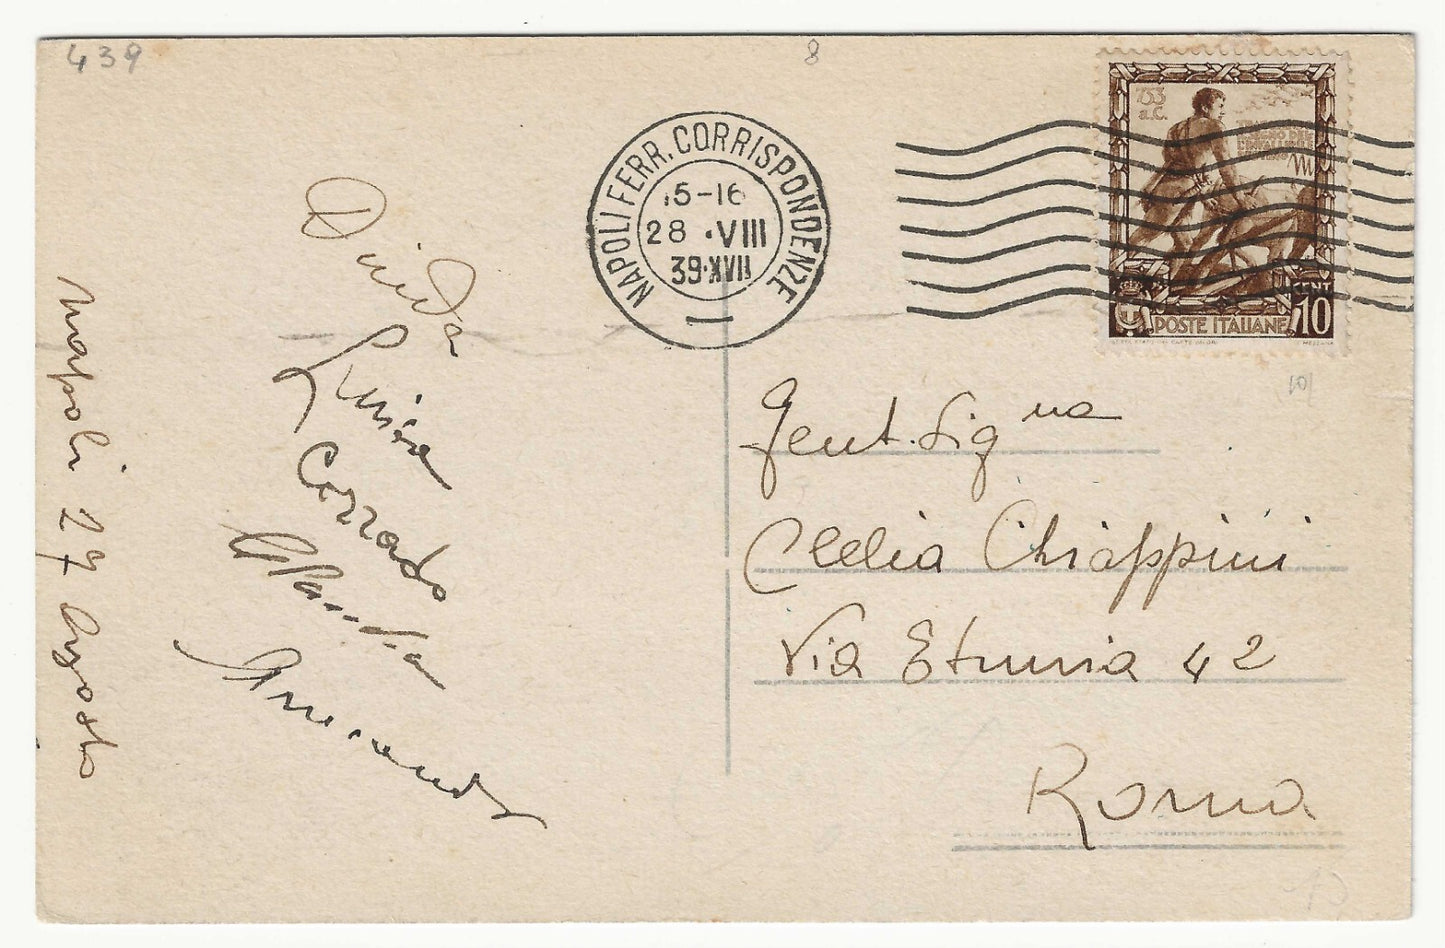 439
8
753
a.C.
NAPOLI FERR. CORRISPONDENZE
15-16
28 · VIII
39·XVII
POSTE ITALIANE
CENT
10
MEZZANA
Gent. Sig na
Clelia Chiappini
Via Etruria 42
Roma
Luisa
Corrado
Napoli 27 Agosto